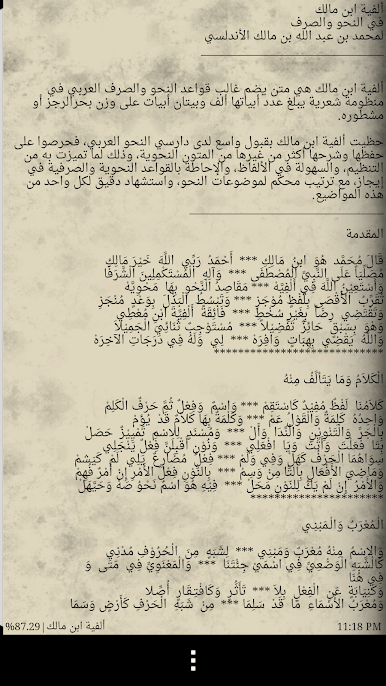 ألفية ابن مالك
في النحو والصرف
لمحمد بن عبد الله بن مالك الأندلسي
ألفية ابن مالك هي متن يضم غالب قواعد النحو والصرف العربي في
منظومة شعرية يبلغ عدد أبياتها ألف وبيتان أبيات على وزن بحرالرجز أو
مشطوره.
حظيت ألفية ابن مالك بقبول واسع لدى دارسي النحو العربي، فحرصوا على
حفظها وشرحها أكثر من غيرها من المتون النحوية، وذلك لما تميزت به من
التنظيم، والسهولة في الألفاظ، والإحاطة بالقواعد النحوية والصرفية في
إيجاز، مع ترتيب محكم لموضوعات النحو، واستشهاد دقيق لكل واحد من
هذه المواضيع.
المقدمة
قَالَ مُحَمَّد هُوَ ابنُ مَالِكِ *** أَحْمَدُ رَبِّي اللَّهَ خَيْرَ مَالِكِ
مُصَلِّيَاً عَلَى النَّبِيِّ الْمُصْطَفَى *** وَآلِهِ الْمُسْتَكْمِلِينَ الْشَّرَفَا
وَأَسْتَعِيْنُ اللَّهَ فِي أَلْفِيَّهْ *** مَقَاصِدُ الْنَّحْوِ بِهَا مَحْوِيَّهْ
تُقَرِّبُ الأَقْصَى بِلَفْظٍ مُوْجَزِ *** وَتَبْسُطُ الْبَذْلَ بِوَعْدٍ مُنْجَزِ
وَتَقْتَضِي رِضَاً بِغَيْرِ سُخْطِ *** فَائِقَةً أَلْفِيَّةَ ابْنِ مُعْطِي
وَهْوَ بِسَبْقٍ حَائِزٌ تَفْضِيْلاً *** مُسْتَوْجِبٌ ثَنَائِيَ الْجَمِيْلاَ
وَاللَّهُ يَقْضِي بِهِبَاتٍ وَافِرَهْ *** لِي وَلَهُ فِي دَرَجَاتِ الآخِرَهْ
***************************
الْكَلاَمُ وَمَا يَتَأَلَّفُ مِنْهُ
كَلاَمُنَا لَفْظٌ مُفِيْدٌ كَاسْتَقِمْ *** وَاسْمٌ وَفِعْلٌ ثُمَّ حَرْفٌ الْكَلِمْ
وَاحِدُهُ كَلِمَةٌ وَالْقَوْلُ عَمْ *** وَكَلْمَةٌ بِهَا كَلاَمٌ قَدْ يُؤمْ
بِالجَرِّ وَالْتَّنْوِيْنِ وَالْنِّدَا وَأَلْ *** وَمُسْنَدٍ لِلاسْمِ تَمْيِيْزٌ حَصَلْ
بِتَا فَعَلْتَ وَأَتَتْ وَيَا افْعَلِي *** وَنُوْنِ أَقْبِلَنَّ فِعْلٌ يَنْجَلِي
سِوَاهُمَا الْحَرْفُ كَهَلْ وَفِي وَلَمْ *** فِعْلٌ مُضَارِعٌ يَلِي لَمْ كَيَشَمْ
وَمَاضِيَ الأَفْعَالِ بِالتَّا مِزْ وَسِمْ *** بِالنُّوْنِ فِعْلَ الأَمْرِ إِنْ أَمْرٌ فُهِمْ
وَالأَمْرُ إِنْ لَمْ يَكُ لِلنُّوْنِ مَحَلْ *** فِيْهِ هُوَ اسْمٌ نَحْوُ صَهْ وَحَيَّهَلْ
*********************
الْمُعْرَبُ وَالْمَبْنِي
وَالاسْمُ مِنْهُ مُعْرَبٌ وَمَبْنِي *** لِشَبَهٍ مِنَ الْحُرُوْفِ مُدْنِي
كَالشَّبَهِ الْوَضْعِيِّ فِي اسْمَيْ جِئْتَنَا *** وَالْمَعْنَوِيِّ فِي مَتَى وَ
فِي هُنَا
وَكَنِيَابَةٍ عَنِ الْفِعْلِ بِلاَ *** تَأَثُّرٍ وَكَافْتِقَارٍ أُصِّلا
وَمُعْرَبُ الأَسْمَاءِ مَا قَدْ سَلِمَا *** مِنْ شَبَهِ الْحَرْفِ كَأَرْضٍ وَسَمَا
11:18 PM ألفية ابن مالك|%87.29